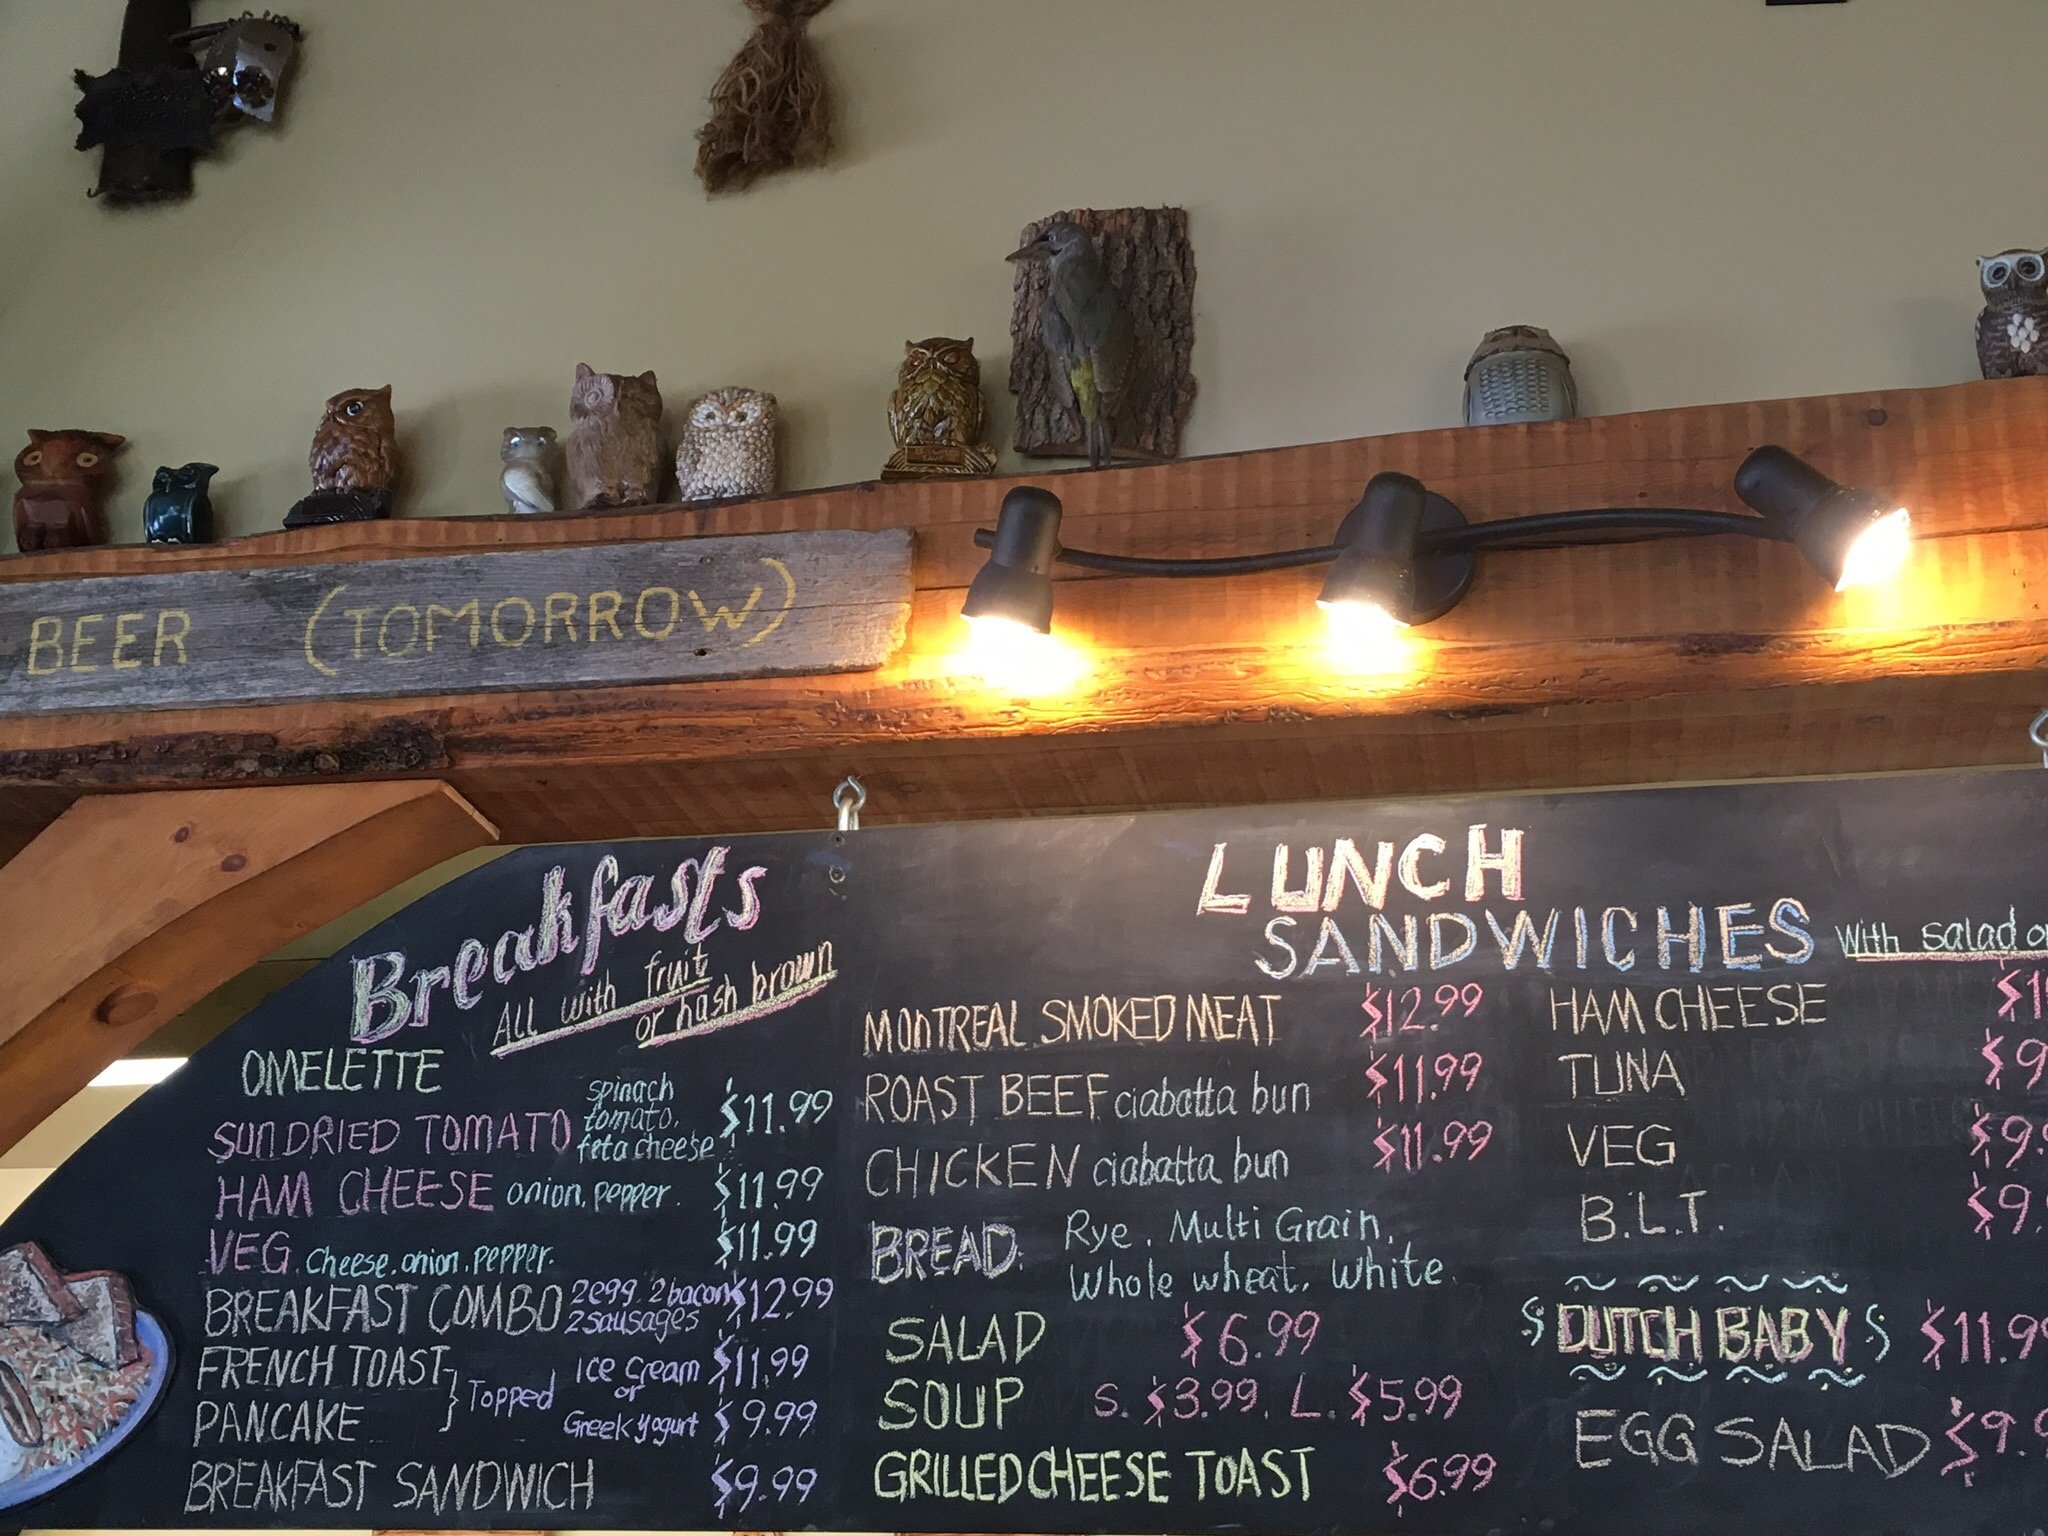 BEER (TOMORROW)
Breakfasts
All with fruit
or hash brown
OMELETTE
SUNDRIED TOMATO spinach tomato, feta cheese $11.99
HAM CHEESE onion, pepper. $11.99
VEG. Cheese. onion. pepper. $11.99
BREAKFAST COMBO 2 egg. 2 bacon 2 sausages $12.99
FRENCH TOAST $11.99
PANCAKE $9.99
} Topped Ice Cream or Greek yogurt
BREAKFAST SANDWICH $9.99
LUNCH
SANDWICHES With salad or
MONTREAL SMOKED MEAT $12.99
ROAST BEEF ciabatta bun $11.99
CHICKEN ciabatta bun $11.99
BREAD: Rye. Multi Grain,
Whole wheat, White.
SALAD $6.99
SOUP S. $3.99, L. $5.99
GRILLED CHEESE TOAST $6.99
HAM CHEESE $1
TUNA $9
VEG $9.
B.L.T. $9.
DUTCH BABY $11.99
EGG SALAD $9.9